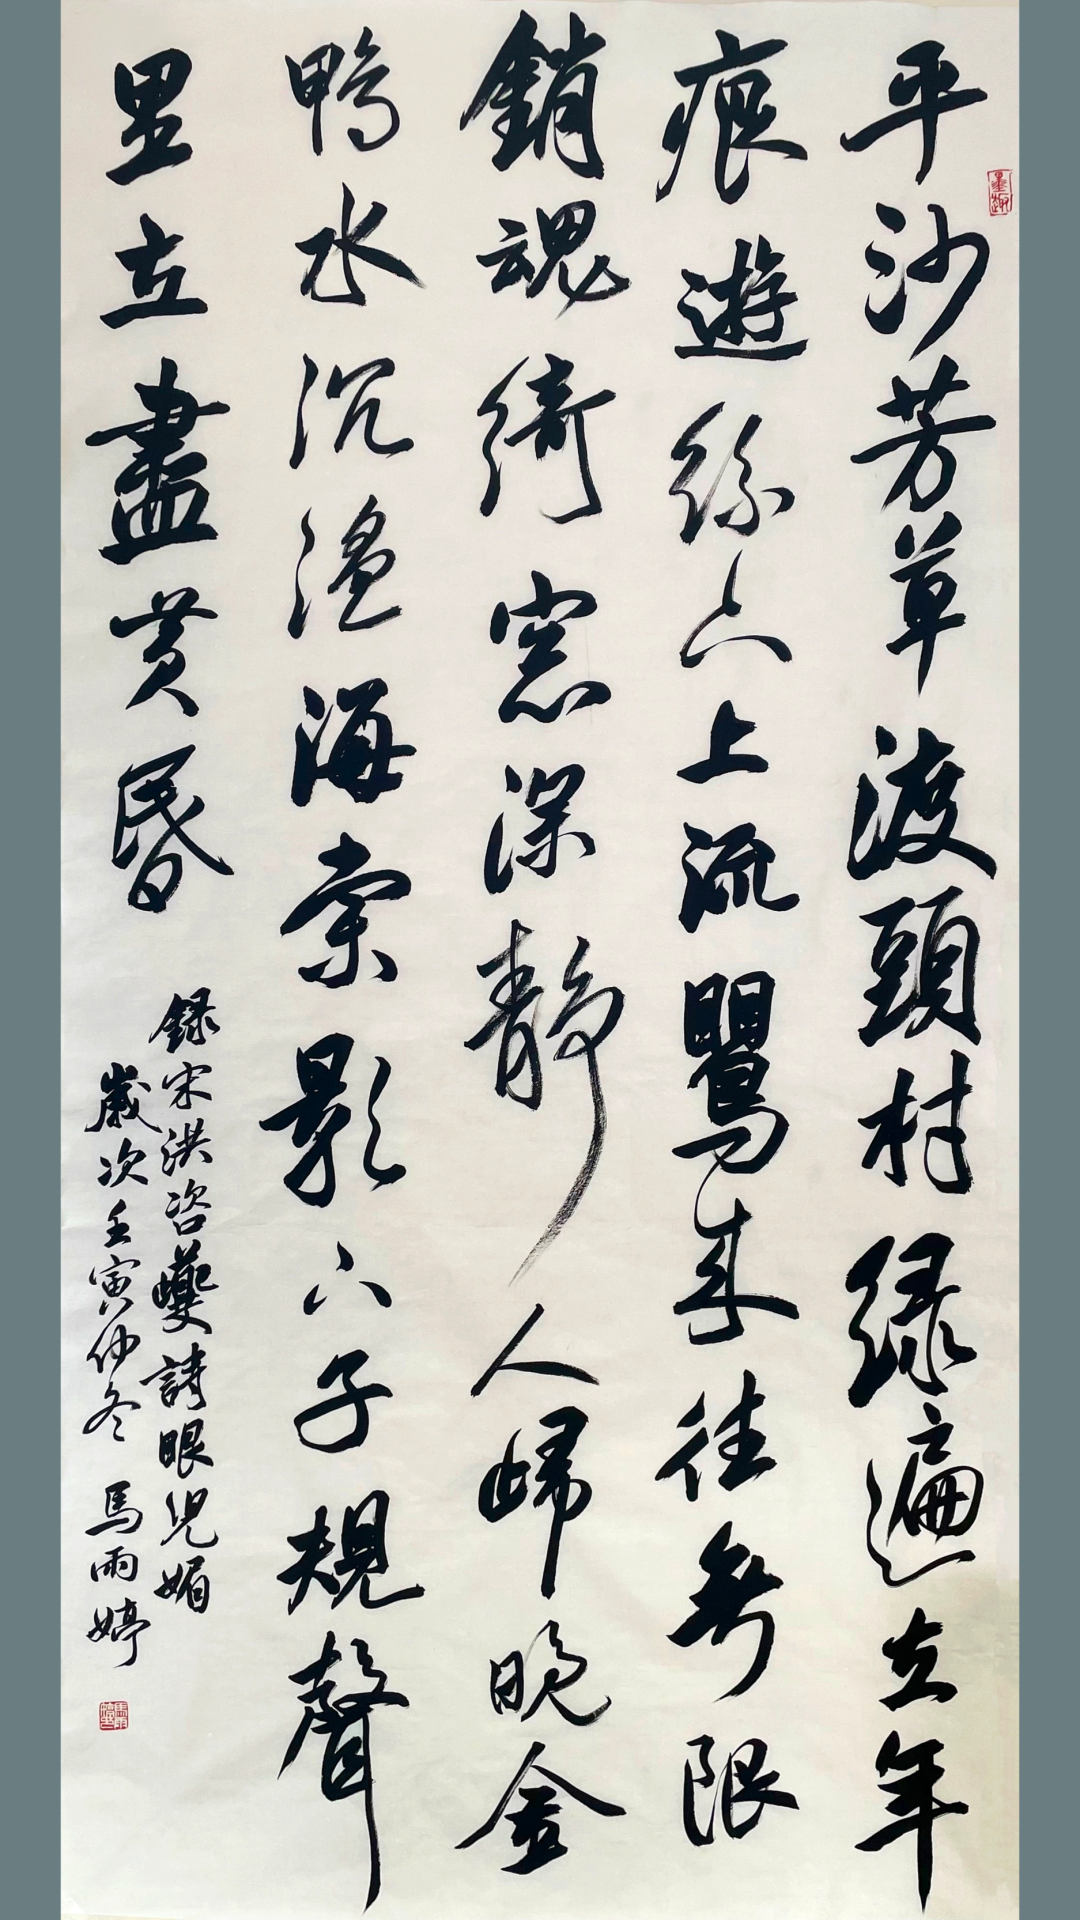 平沙芳草渡頭村綠遍去年
痕遊絲下上流鸎來往無限
銷魂綺窓深靜人歸晚金
鴨水沉溫海棠影下子規聲
里立盡黄昬
録宋洪咨夔詩眼児媚
歲次壬寅仲冬 馬雨婷
墨趣